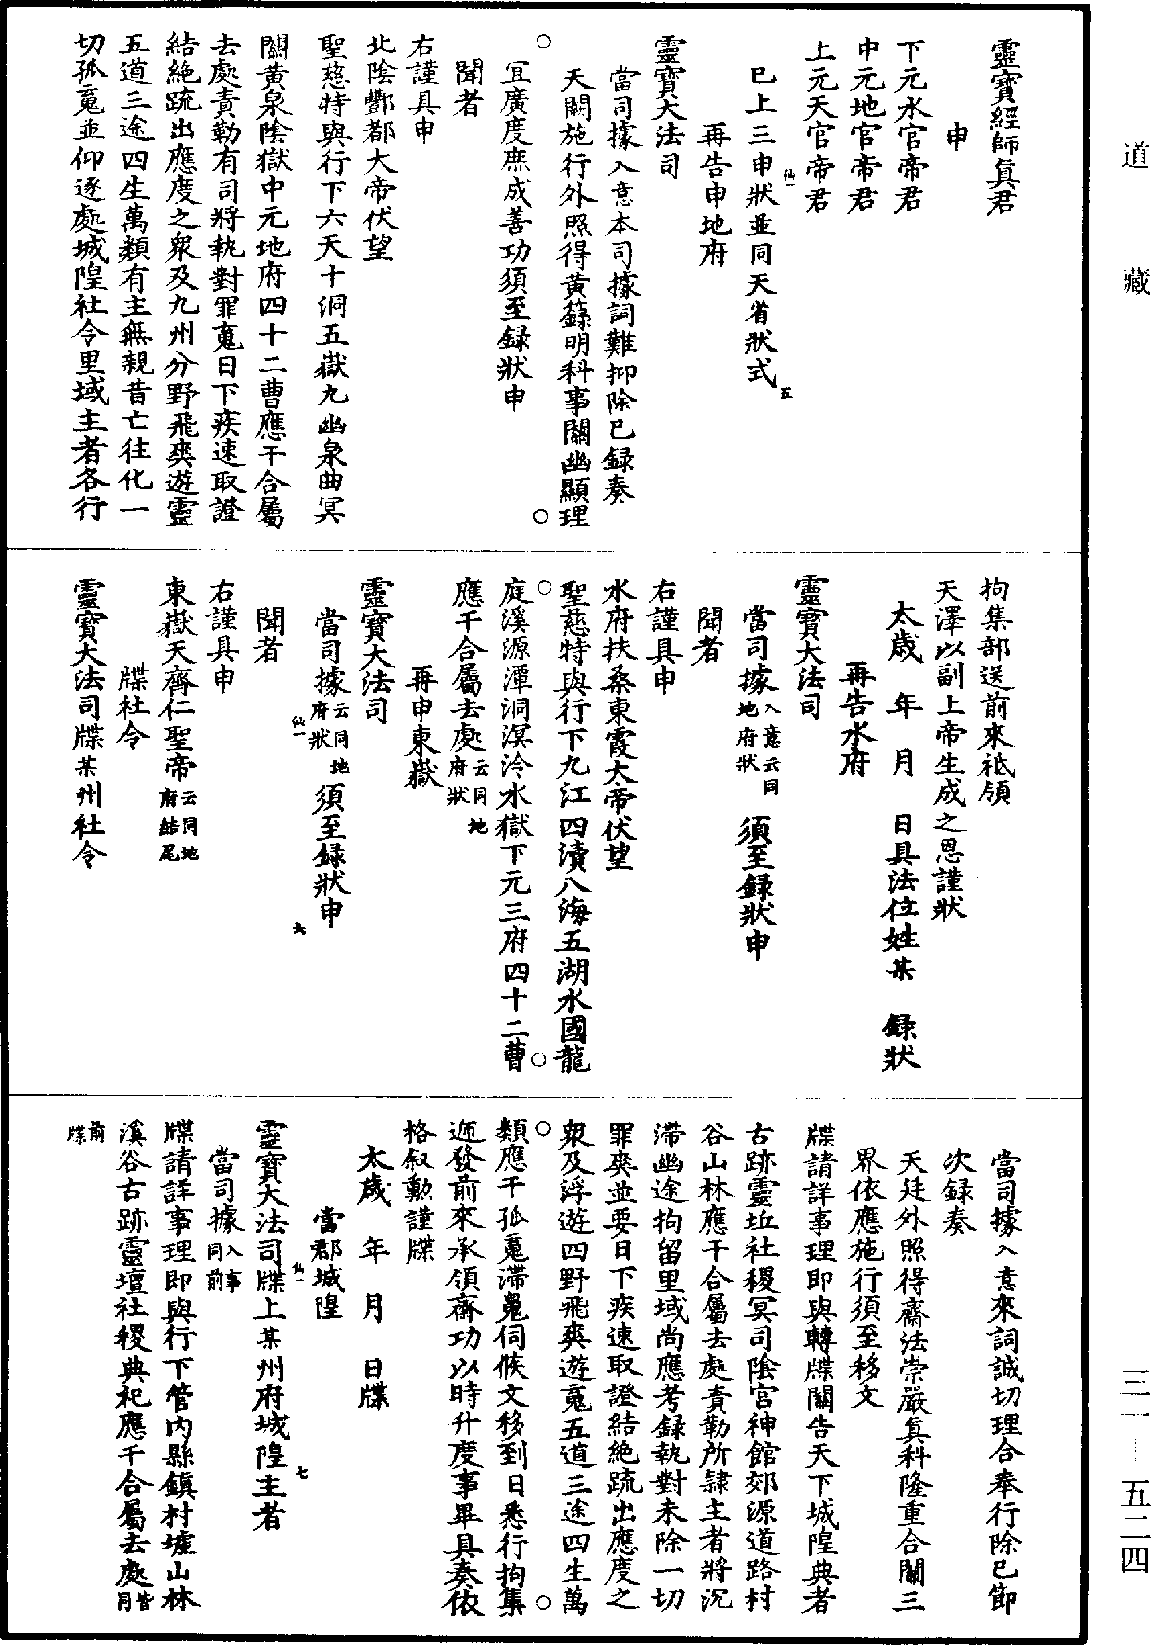 道藏
三一—五二四
靈寶經師眞君
申
下元水官帝君
中元地官帝君
上元天官帝君
已上三申狀並同天省狀式
仙一
五
再告申地府
靈寶大法司
當司據入意本司據詞難抑除已録奏
天闕施行外照得黄籙明科事關幽顯理
○
○
宜廣度庶成善功須至録狀申
聞者
右謹具申
北陰酆都大帝伏望
聖慈特與行下六天十洞五嶽九幽泉曲冥
關黄泉陰獄中元地府四十二曹應干合屬
去處責勒有司將執對罪䰟日下疾速取證
結絶疏出應度之衆及九州分野飛爽遊靈
五道三途四生萬類有主無親昔亡往化一
切孤䰟並仰逐處城隍社令里域主者各行
拘集部送前來祗領
天澤以副上帝生成之恩謹狀
太歲 年 月 日具法位姓某 録狀
再告水府
靈寶大法司
當司據入意云同地府狀 須至録狀申
聞者
右謹具申
水府扶桑東霞大帝伏望
聖慈特與行下九江四瀆八海五湖水國龍
○
○
庭溪源潭洞溟泠水獄下元三府四十二曹
應干合屬去處云同地府狀
再申東嶽
靈寶大法司
當司據云同地府狀 須至録狀申
仙一
六
聞者
右謹具申
東嶽天齊仁聖帝云同地府結尾
牒社令
靈寶大法司牒某州社令
當司據入意來詞誠切理合奉行除已節
次録奏
天廷外照得齋法崇嚴眞科隆重合關三
界依應施行須至移文
牒請詳事理即與轉牒關告天下城隍典者
古跡靈坵社稷冥司陰宮神館郊源道路村
谷山林應干合屬去處責勒所隷主者將沉
滯幽途拘留里域尚應考録執對未除一切
罪爽並要日下疾速取證結絶疏出應度之
衆及浮遊四野飛爽遊䰟五道三途四生萬
○
○
類應干孤䰟滯魄伺候文移到日悉行拘集
遞發前來承領齋功以時升度事畢具奏依
格叙勳謹牒
太歲 年 月 日牒
當郡城隍
靈寶大法司牒上某州府城隍主者
仙一
七
當司據入事同前
牒請詳事理即與行下管内縣鎮村墟山林
溪谷古跡靈壇社稷典祀應干合屬去處皆同
前牒